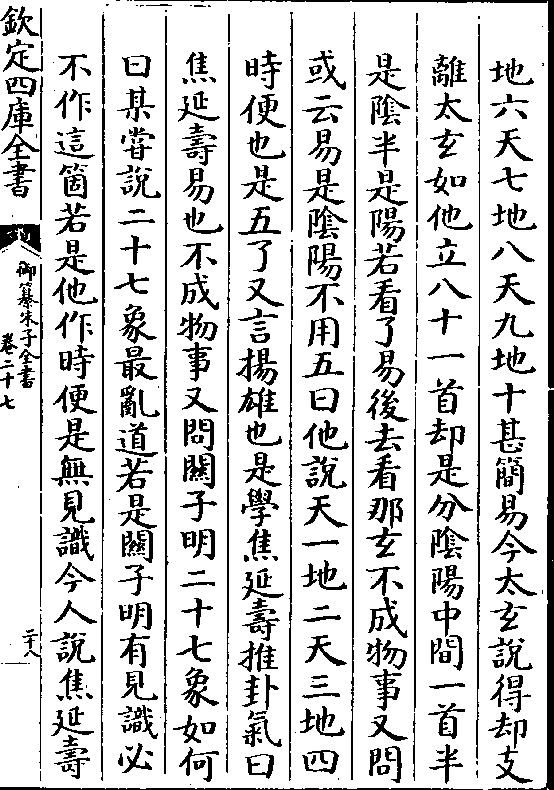 地六天七地八天九地十甚簡易今太𤣥說得却支
離太𤣥如他立八十一首却是分陰陽中間一首半
是陰半是陽若看了易後去看那𤣥不成物事又問
或云易是陰陽不用五曰他說天一地二天三地四
時便也是五了又言揚雄也是學焦延壽推卦氣曰
焦延壽易也不成物事又問關子明二十七象如何
曰某嘗說二十七象最亂道若是關子明有見識必
不作這箇若是他作時便是無見識今人說焦延壽
欽定四庫全書
御纂朱子全書
卷二十七
二十八